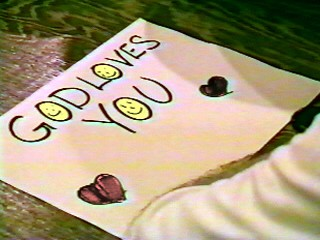 GOD LOVES
YOU